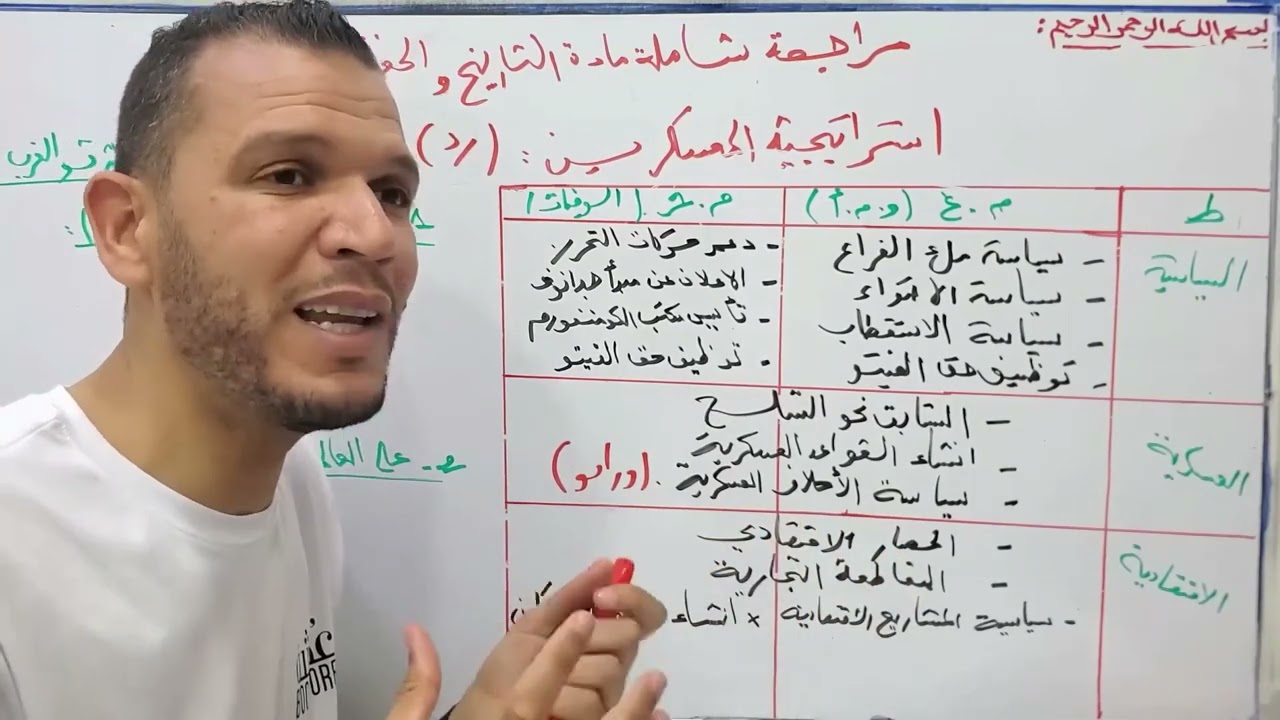 بسم الله الرحمن الرحيم :
مراجعة شاملة مادة التاريخ و
استراتيجية المعسكرين : (رد)
ط
م . غ (و . م . أ)
م . ش . (السوفيات)
السياسية
- سياسة ملء الفراغ
- سياسة الاحتواء
- سياسة الاستقطاب
- توظيف حق الفيتو
- دعم حركات التحرر
- الاعلان عن مبدأ جدانوف
- تأسيس مكتب الكومنفورم
- توظيف حق الفيتو
العسكرية
- التسابق نحو التسلح
- انشاء القواعد العسكرية
- سياسة الأحلاف العسكرية . (وراسو)
الاقتصادية
- الحصار الاقتصادي
- المقاطعة التجارية
- سياسية المشاريع الاقتصادية × انشاء
الغرب
على العالم